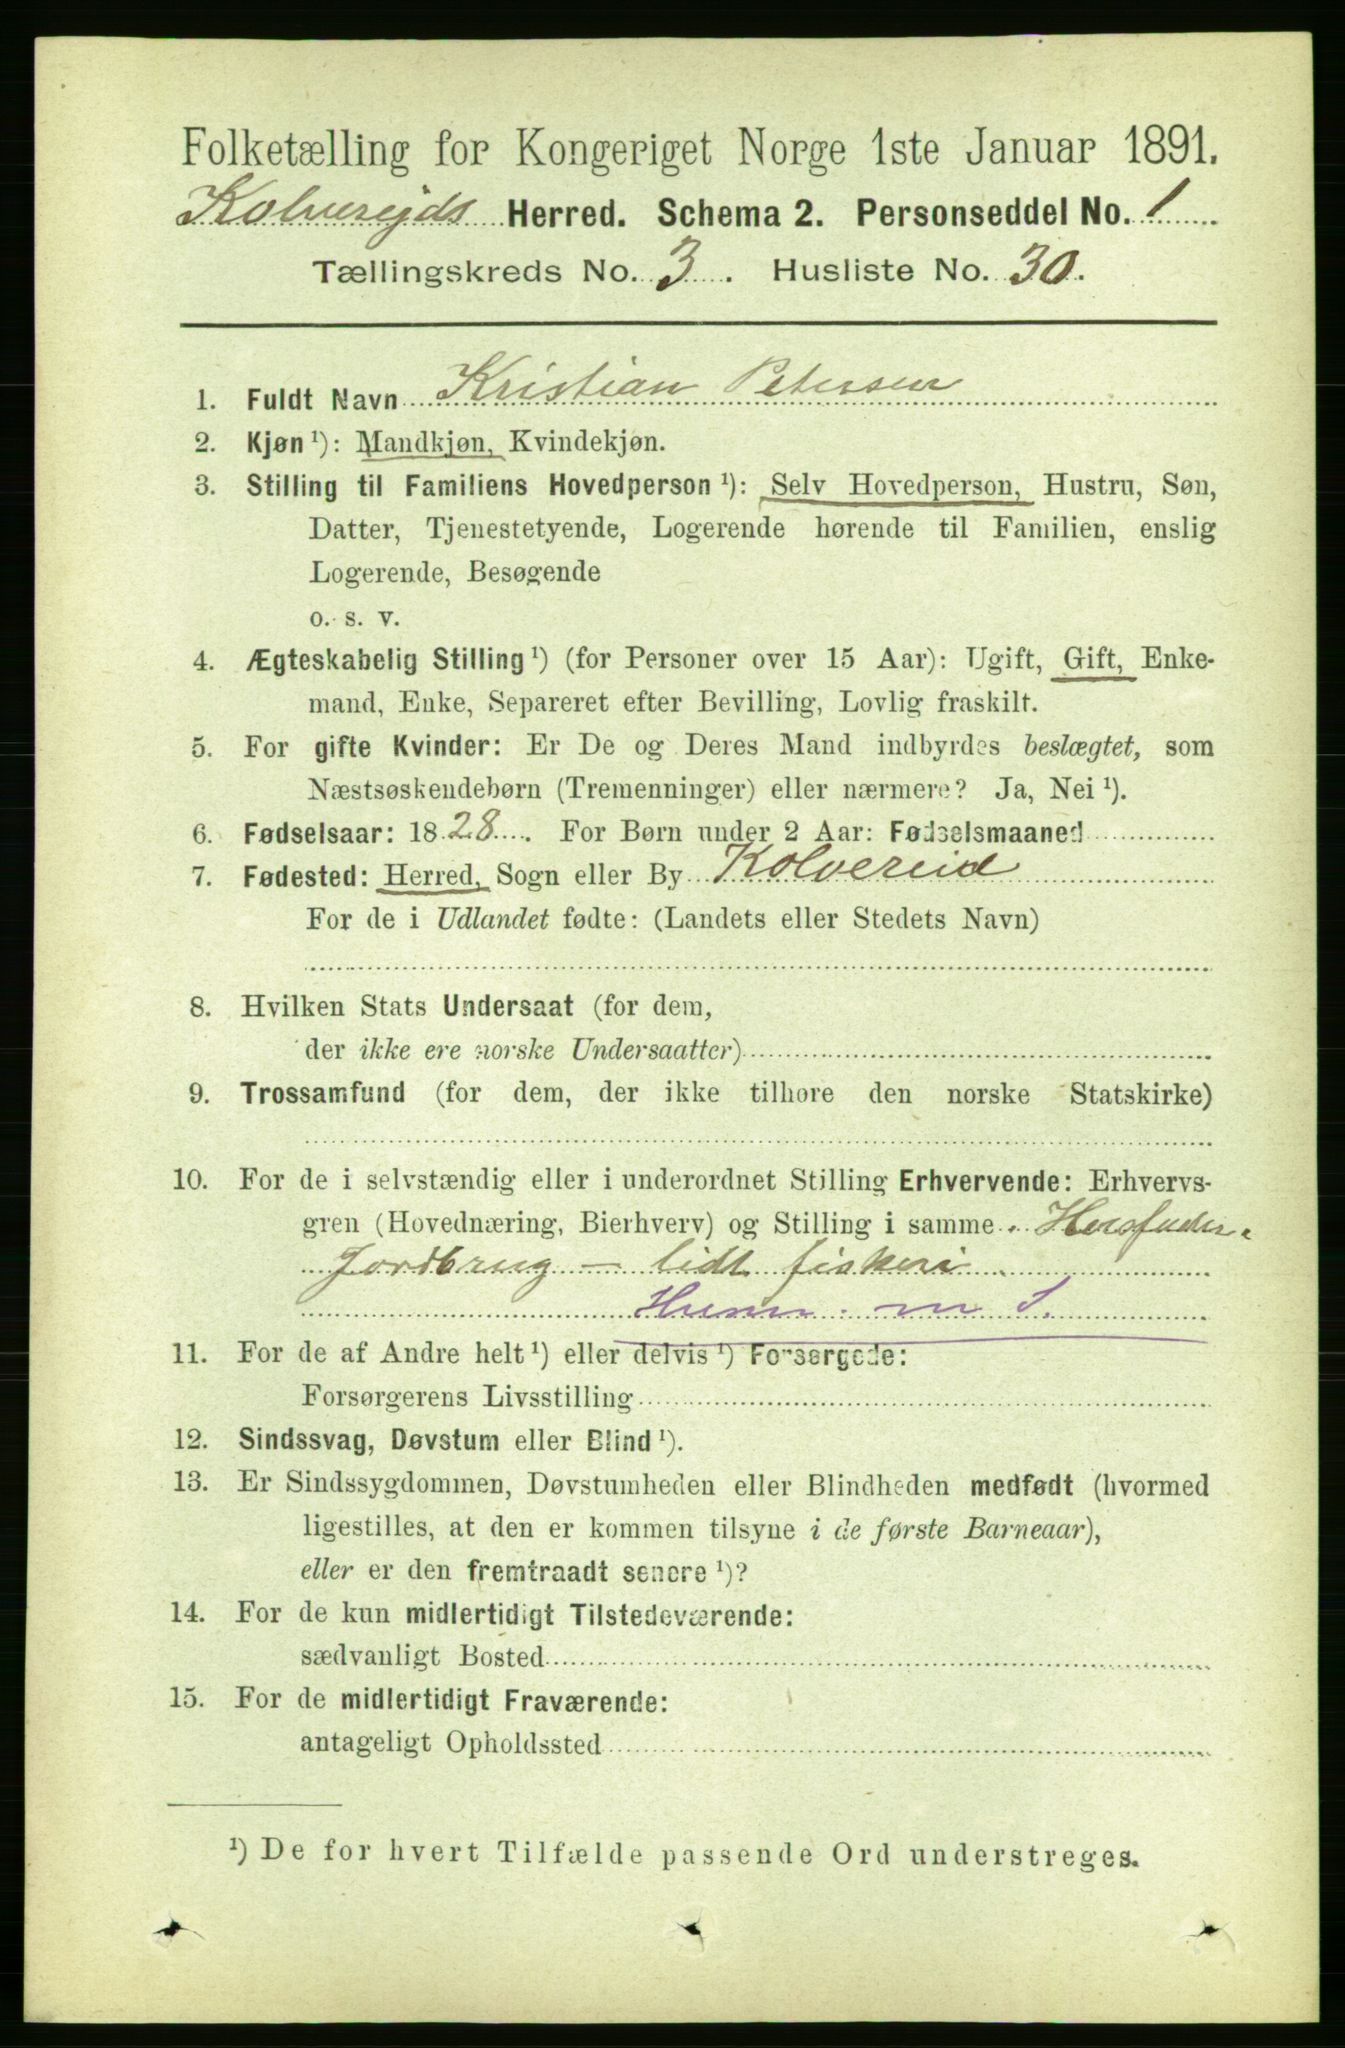 Folketælling for Kongeriget Norge 1ste Januar 1891.
Kolverejds Herred. Schema 2. Personseddel No. 1
Tællingskreds No. 3. Husliste No. 30.
1. Fuldt Navn Kristian Petersen
2. Kjøn ¹): Mandkjøn, Kvindekjøn.
3. Stilling til Familiens Hovedperson ¹): Selv Hovedperson, Hustru, Søn,
Datter, Tjenestetyende, Logerende hørende til Familien, enslig
Logerende, Besøgende
o. s. v.
4. Ægteskabelig Stilling ¹) (for Personer over 15 Aar): Ugift, Gift, Enke-
mand, Enke, Separeret efter Bevilling, Lovlig fraskilt.
5. For gifte Kvinder: Er De og Deres Mand indbyrdes beslægtet, som
Næstsøskendebørn (Tremenninger) eller nærmere? Ja, Nei ¹).
6. Fødselsaar: 1828. For Børn under 2 Aar: Fødselsmaaned
7. Fødested: Herred, Sogn eller By Kolvereid
For de i Udlandet fødte: (Landets eller Stedets Navn)
8. Hvilken Stats Undersaat (for dem,
der ikke ere norske Undersaatter)
9. Trossamfund (for dem, der ikke tilhøre den norske Statskirke)
10. For de i selvstændig eller i underordnet Stilling Erhvervende: Erhvervs-
gren (Hovednæring, Bierhverv) og Stilling i samme
Jordbrug – lidt fiskeri
m S.
11. For de af Andre helt ¹) eller delvis ¹) Forsørgede:
Forsørgerens Livsstilling
12. Sindssvag, Døvstum eller Blind ¹).
13. Er Sindssygdommen, Døvstumheden eller Blindheden medfødt (hvormed
ligestilles, at den er kommen tilsyne i de første Barneaar),
eller er den fremtraadt senere ¹)?
14. For de kun midlertidigt Tilstedeværende:
sædvanligt Bosted
15. For de midlertidigt Fraværende:
antageligt Opholdssted
¹) De for hvert Tilfælde passende Ord understreges.